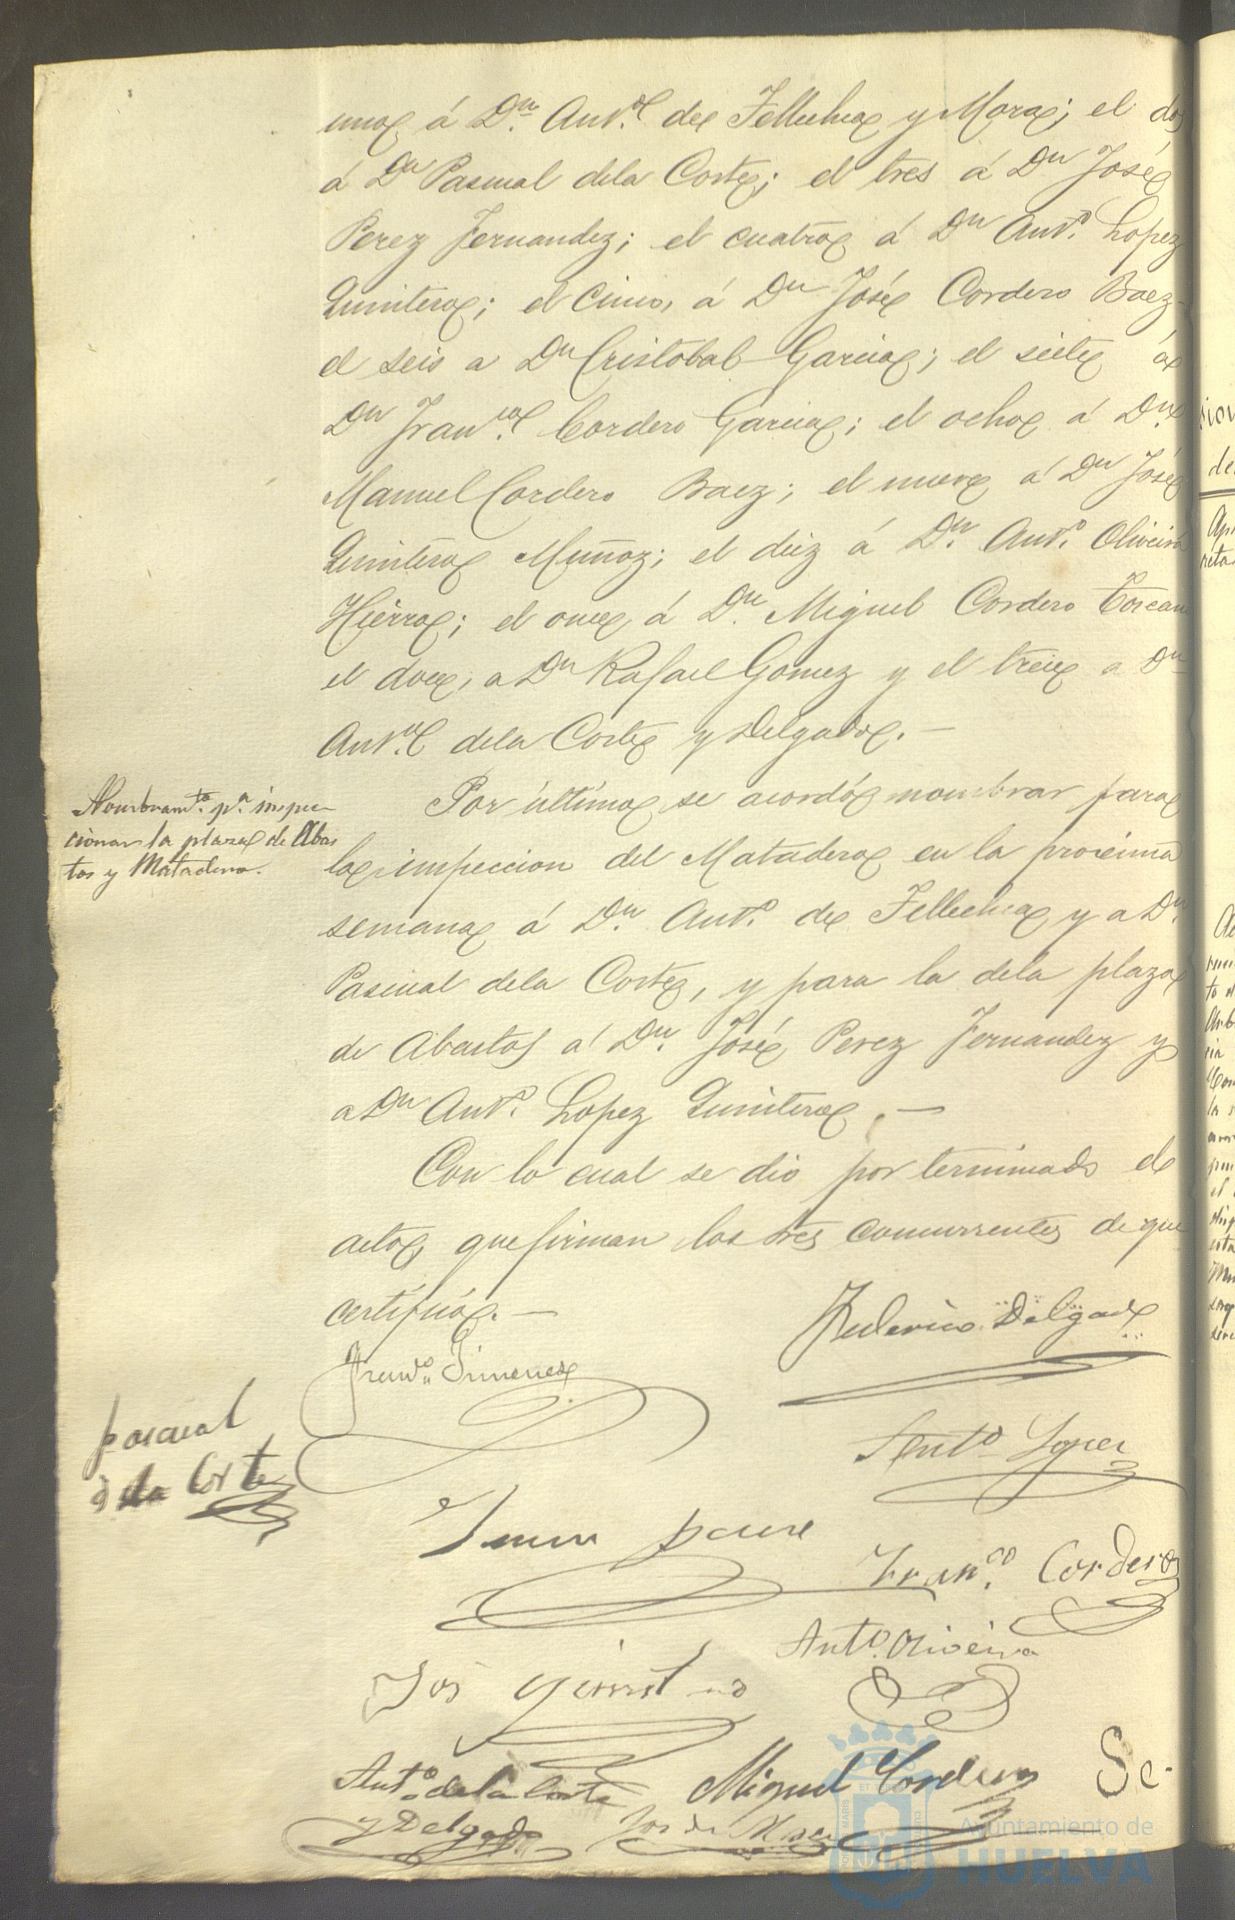 uno á Dn. Anto. de Tellechea y Mora; el dos
á Dn Pascual dela Corte; el tres á Dn José
Perez Fernandez; el cuatro á Dn Anto. Lopez
Quintero; el cinco, á Dn José Cordero Baez
el seis a Dn Cristobal Garcia; el siete á
Dn Franco. Cordero Garcia; el ocho á Dn
Manuel Cordero Baez; el nueve á Dn José
Quintero Muñoz; el diez á Dn. Anto. Oliveira
Hierro; el once á Dn. Miguel Cordero
el doce, a Dn Rafael Gomez y el trece a Dn
Anto. dela Corte y Delgado.—
Nombramto. pa. inspec-
cionar la plaza de Abas
tos y Matadero.
Por último se acordó nombrar para
la inspeccion del Matadero en la proxima
semana á Dn. Anto. de Tellechea y a Dn.
Pascual dela Corte, y para la dela plaza
de Abastos á Dn. José Perez Fernandez y
a Dn Anto. Lopez Quintero.—
Con lo cual se dio por terminado el
acto, que firman los Sres concurrentes de que
certifico.—
Federico Delgado
Franco. Jimenez
pascual
dela Corte
Anto Lopez
Franco. Cordero
Anto. Oliveira
José
Anto. de la Corte
y Delgado
Miguel Cordero
José
Se-
Ayuntamiento de
HUELVA